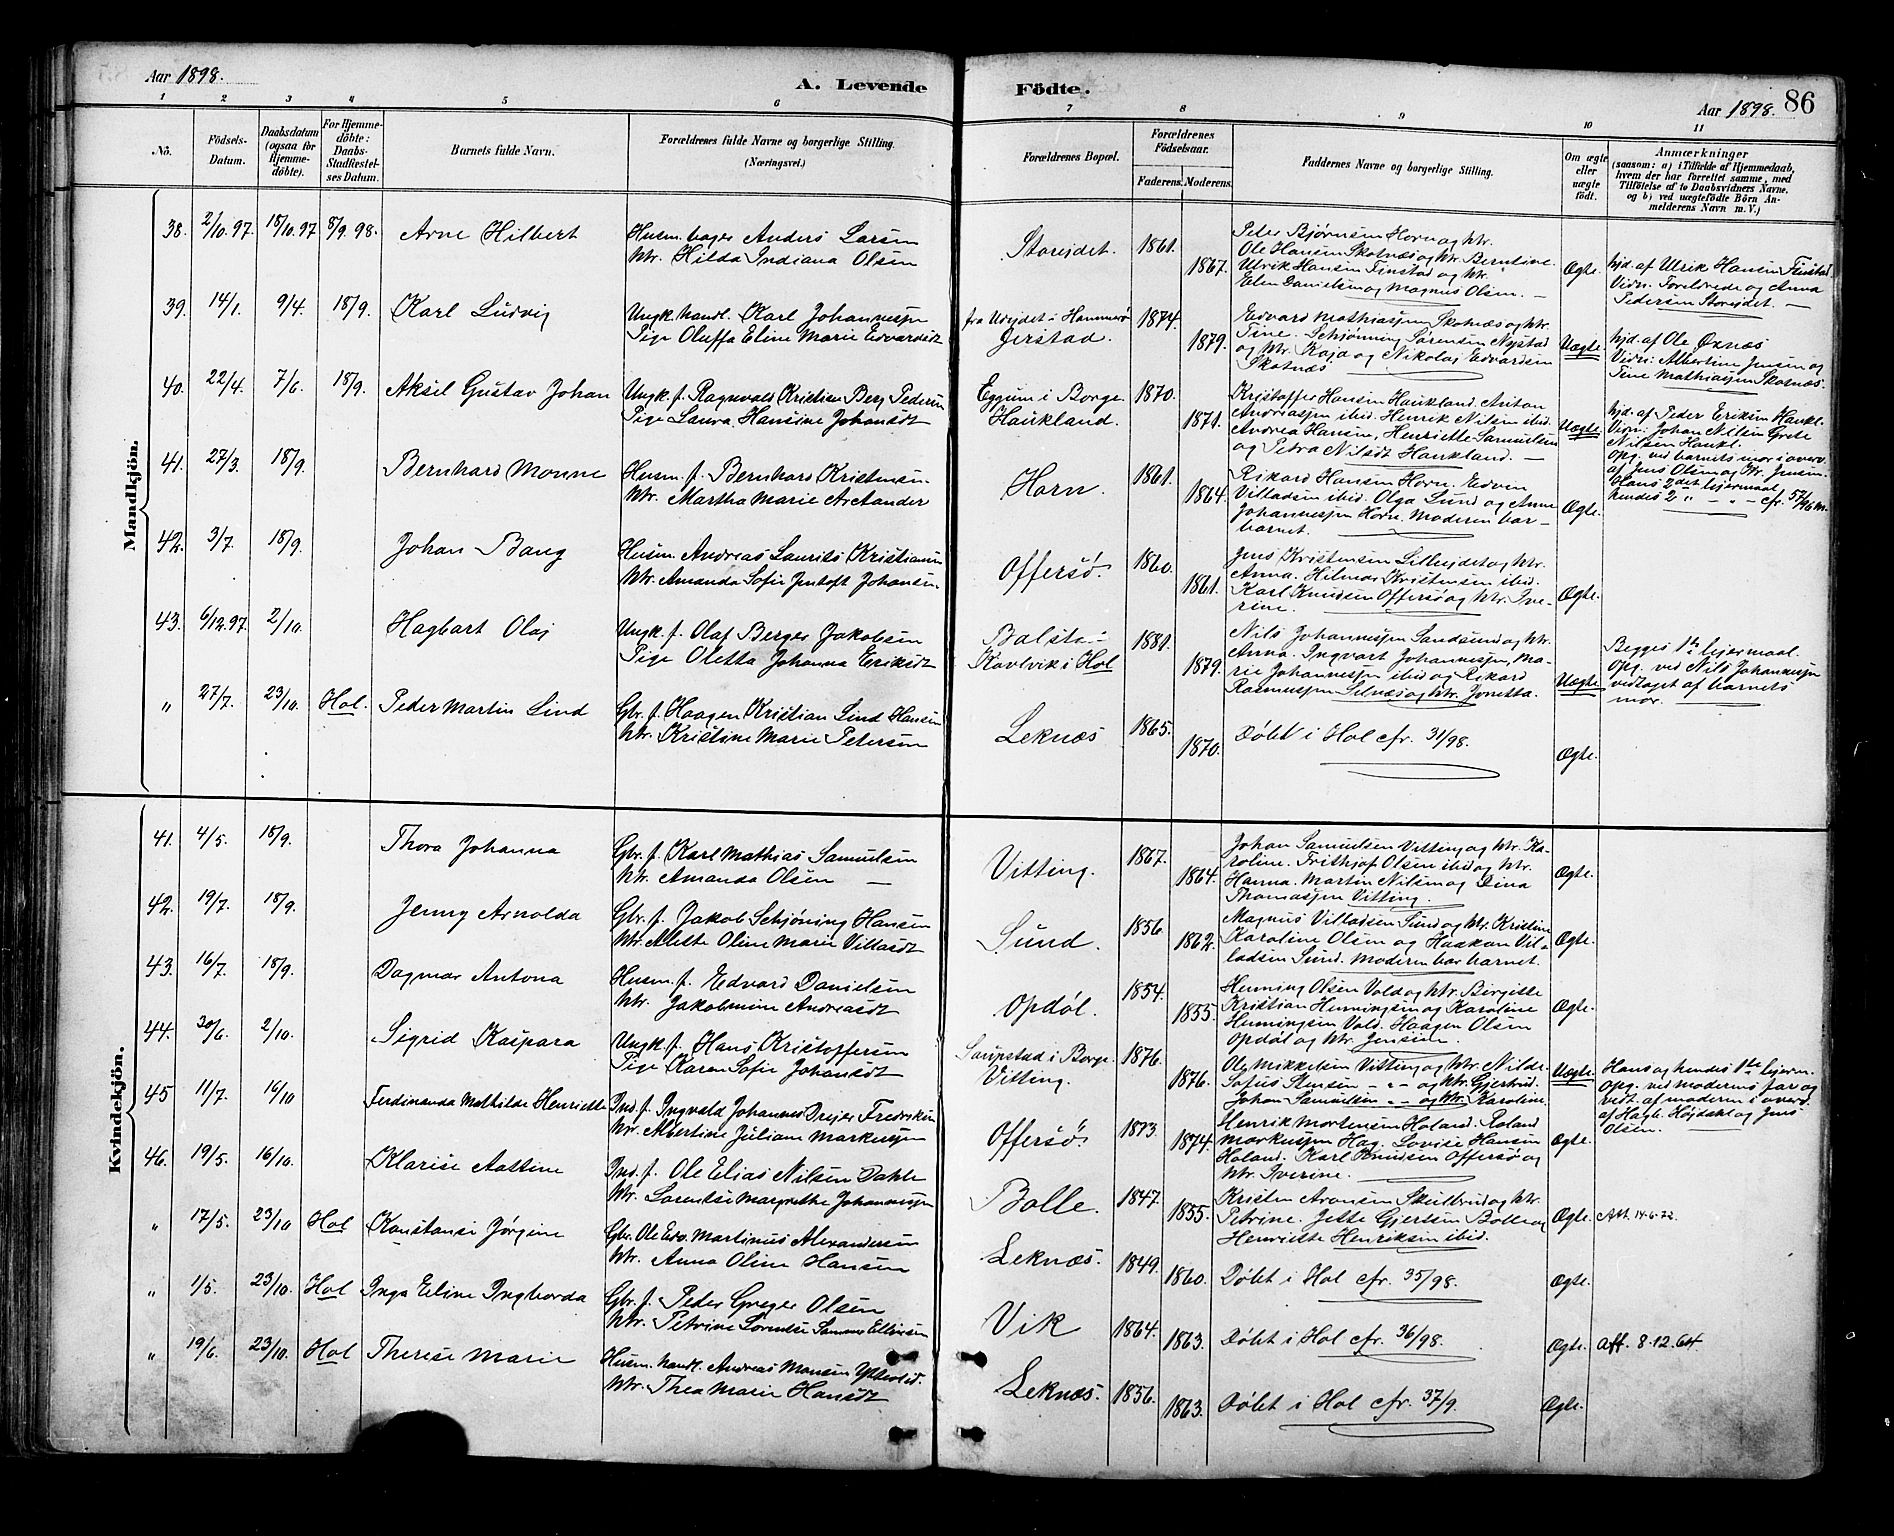 Aar 1898.
A. Levende Födte.
Aar 1898. 86
1 2 3 4 5 6 7 8 9 10 11
No.
Födsels-Datum.
Daabsdatum (ogsaa for Hjemmedöbte).
For Hjemmedöbte: Daabs-Stadfæstelses Datum.
Barnets fulde Navn.
Forældrenes fulde Navne og borgerlige Stilling.
(Næringsvei.)
Forældrenes Bopæl.
Forældrenes Födselsaar.
Faderens. Moderens.
Faddernes Navne og borgerlige Stilling.
Om ægte eller uægte födt.
Anmærkninger
(saasom: a) i Tilfælde af Hjemmedaab, hvem der har forrettet samme, med Tilföielse af to Daabsvidners Navne. og b) ved uægtefödte Börn Anmelderens Navn m. V.)
Mandkjön.
38. 2/10.97. 18/10.97 8/9.98. Arne Hilbert
Husm. bager Anders Larsen
Htr. Hilda Indiana Olsen
Storeidet. 1861. 1867.
Peter Bjørnsen Horn og Htr.
Ole Hansen Skotnæs og Htr. Berntine.
Ulrik Hansen Finstad og Htr.
Elen Danielsen og Magnus Olsen. —
Ægte.
hjd. af Ulrik Hansen Finstad.
Vidn: Foreldrede og Anna
Pedersen Storeidet. —
39. 14/1. 9/4. 18/9. Karl Ludvig
Ungk. handl. Karl Johannesen
Pige Oluffa Eline Marie Edvardsdt
fra Hammerø
Jerstad. 1874. 1879.
Edvard Mathiassen Skotnæs og Htr.
Tine. Schjønning Sørensen Nystad
og Htr. Kaja og Nikolaj Edvardsen
Skotnæs
Uægte.
hjd. af Ole Øxnæs
Vidn: Albertine Jensen og
Tine Mathiassen Skotnæs.
40. 22/4. 7/6. 18/9. Aksil Gustav Johan
Ungk. f. Ragnvald Kristian Berg Pedersen
Pige Laura Hansine Johansdt
Eggum i Borge.
Haukland. 1870. 1871.
Kristoffer Hansen Haukland. Anton
Andreassen ibid. Henrik Nilsen ibid.
Andrea Hansen, Henriette Samuelsen
og Petra Nilsdt Haukland. —
Uægte.
hjd. af Peder Eriksen Haukl.
Vidn: Johan Nilsen Grete
Nilsen Haukl.
Opg. ved barnets mor i overv.
af Jens Olsen og Htr. Jensen
Hans 2det leiermaal
hendes 2 " — " — cfr. 57/96 m.
41. 27/3. 18/9. Bernhard Monne
Husm. f. Bernhard Kristensen.
Htr. Martha Marie Arctander
Horn. 1861. 1864.
Rikard Hansen Horn. Edvin
Villadsen ibid. Olga Lund og Anne
Johannessen Horn. Moderen bar
barnet.
Ægte.
42. 3/7. 18/9. Johan Bang
Husm. Andreas Laurits Kristiansen
Htr. Amanda Sofie Jentoft Johansen.
Offersø. 1860. 1861.
Jens Kristensen Lilleeidet og Htr.
Anna. Hilmar Kristensen ibid.
Karl Knudsen Offersø og Htr. Iverine.
Ægte.
43. 6/12.97. 2/10. Hagbart Olaj
Ungk. f. Olaf Berger Jakobsen
Pige Oletta Johanna Eriksdt
Balstad
Kavlvik i Hol 1881. 1879.
Nils Johannessen Sandsund og Htr.
Anna. Ingvart Johannessen, Marie
Johannessen ibid og Rikard
Rasmussen Selnæs og Htr. Jonetta.
Uægte.
Begges 1te leiermaal.
Opg. ved Nils Johannessen
vedtaget af barnets
mor.
" 27/7. 23/10. Hol. Peder Martin Lind
Gbr. f. Haagen Kristian Lind Hansen
Htr. Kristine Marie Petersen
Leknæs 1865. 1870.
Døbt i Hol cfr. 31/98.
Ægte.
Kvindekjön.
41. 4/5. 18/9. Thora Johanna
Gbr. f. Karl Mathias Samuelsen
Htr. Amanda Olsen —
Vitting. 1867. 1864.
Johan Samuelsen Vitting og Htr. Karoline.
Frithjof Olsen ibid og Htr.
Hanna. Martin Nilsen og Dina
Thomassen Vitting.
Ægte.
42. 19/7. 18/9. Jenny Arnolda
Gbr. f. Jakob Schjöning Hansen
Htr. Alette Oline Marie Villasdt
Sund. 1856. 1862.
Magnus Villadsen Sund og Htr. Kristine
Karoline Olsen og Haakon Villadsen
Sund. Moderen bar barnet.
Ægte.
43. 16/7. 18/9. Dagmar Antona
Husm. f. Edvard Danielsen
Htr. Jakobmine Andreasdt
Opdøl. 1854. 1855.
Henning Olsen Vold og Htr. Birgitte
Kristian Henningsen og Karoline
Henningsen Vold. Haagen Olsen
Opdøl og Htr. Jensine.
Ægte.
44. 30/6. 2/10. Sigrid Kaspara
Ungk. f. Hans Kristoffersen
Pige Karen Sofie Johansdt
Saupstad i Borge.
Vitting. 1876. 1876.
Ole Mikkelsen Vitting og Htr. Nilde
Sofus Stensen — " — og Htr. Gjertrud.
Johan Samuelsen — " — og Htr. Karoline.
Uægte.
Hans og hendes 1te leierm.
Opg. ved moderens far og
vedt. af moderen i overv.
af Hagb. Højdahl og Jens
Olsen.
45 11/7. 16/10 Ferdinanda Mathilde Henriette
Ind. f. Ingvald Johannes Dreyer Fredriksen
Htr. Albertine Juliane Markussen
Offersø 1873. 1874.
Henrik Mortensen Holand. Roland
Markussen Hag. Lovise Hansen
Holand. Karl Knudsen Offersø og
Htr. Iverine.
Ægte.
46. 19/5. 16/10. Klarise Aottine
Ind. f. Ole Elias Nilsen Dahle
Htr. Lorentse Margrethe Johannessen
Bolle. 1847. 1855.
Kristen Aronsen Skulbru og Htr.
Petrine. Jette Gjertsen Bolle og
Henriette Henriksen ibid.
Ægte.
Att. 14-6-22.
" 17/5. 23/10 Hol Konstanse Jørgine
Gbr. Ole Edv. Martinus Alexandersen
Htr. Anna Oline Hansen
Leknæs. 1849. 1860.
Døbt i Hol cfr. 35/98.
Ægte.
" 1/5. 23/10. Hol Inga Eline Ingborda
Gbr. f. Peder Greger Olsen
Htr. Petrine Lorentse Ellingsen
Vik 1864. 1863.
Døbt i Hol cfr. 36/98.
Ægte.
Att. 8.12.64
" 19/6. 23/10. Hol Therese Marie
Husm. handl. Andreas Monsen
Htr. Thea Marie Hansdt
Leknæs. 1856. 1863.
Døbt i Hol cfr. 37/9.
Ægte.